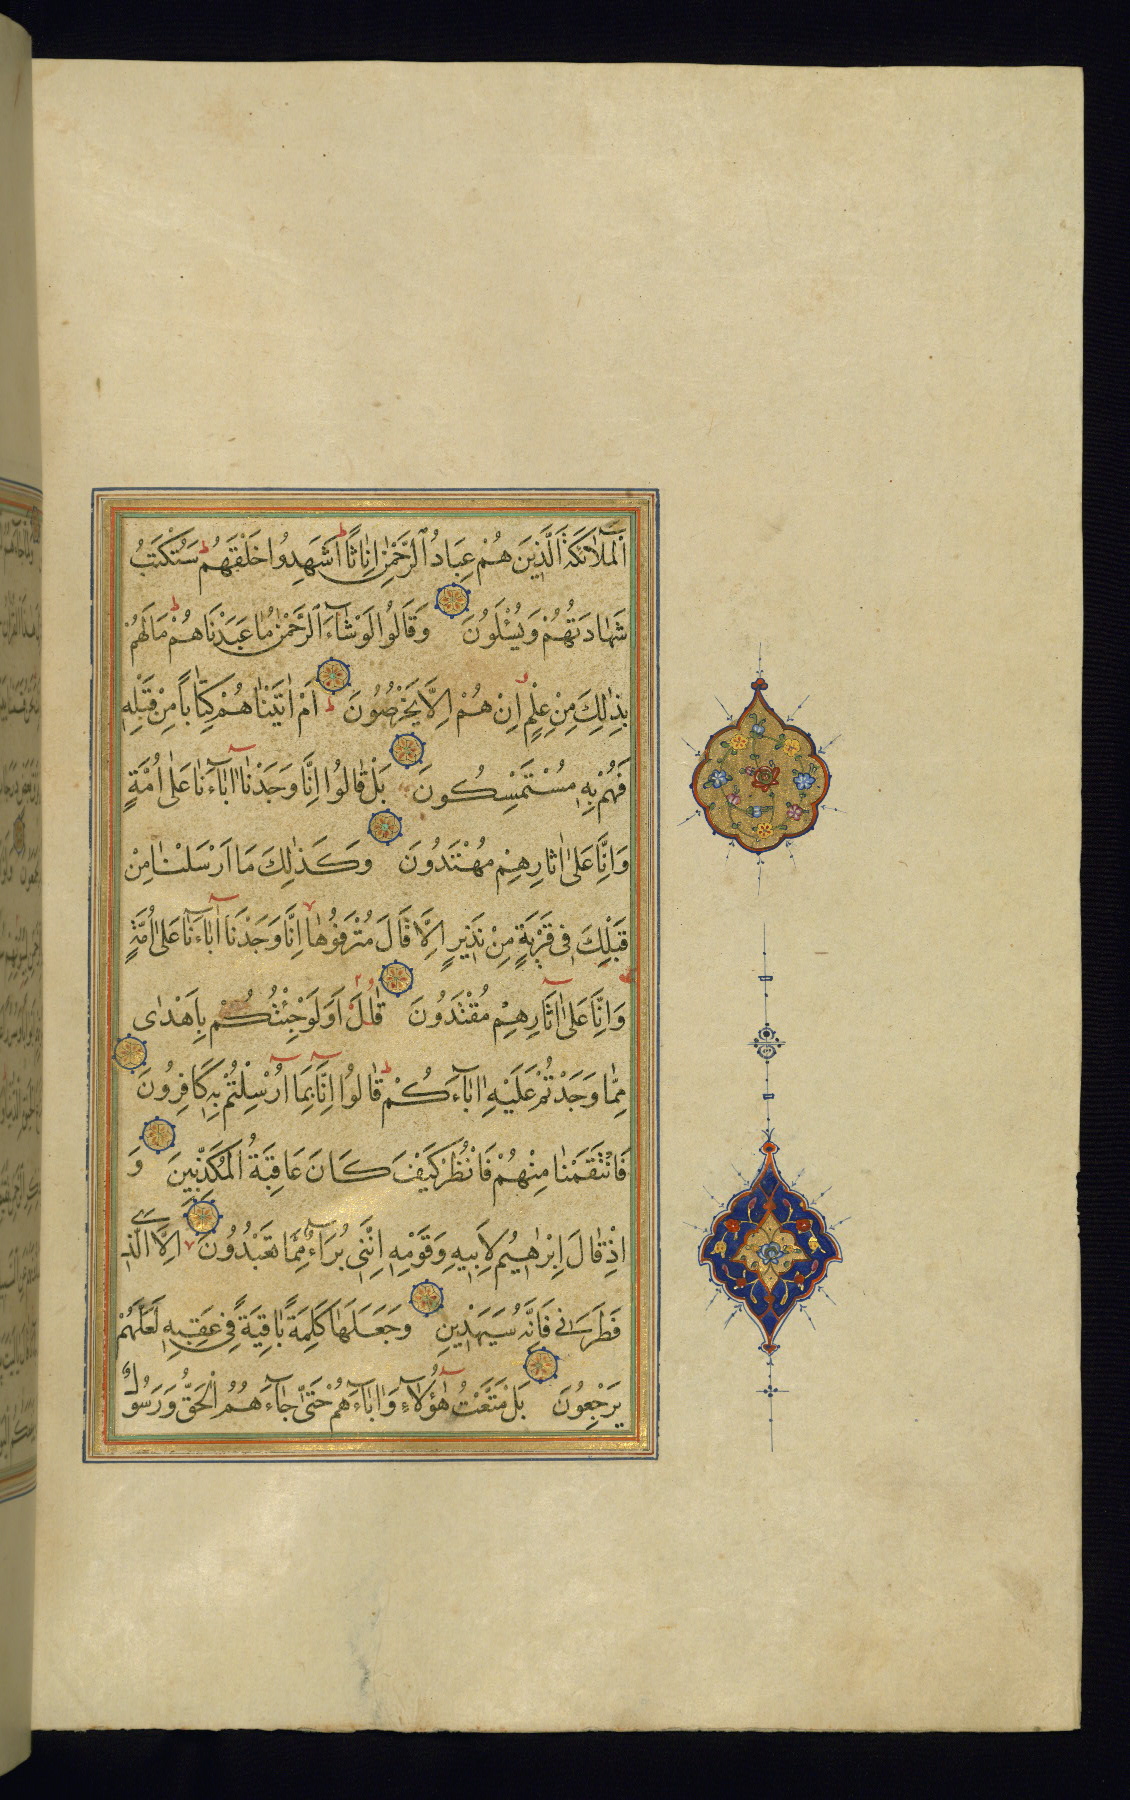 اَلْمَلٰٓائِكَةَ الَّذِينَ هُمْ عِبَادُ الرَّحْمٰنِ اِنَاثًا اَشَهِدُوا خَلْقَهُمْ سَتُكْتَبُ
شَهَادَتُهُمْ وَيُسْئَلُونَ وَقَالُوا لَوْ شَآءَ الرَّحْمٰنُ مَا عَبَدْنَاهُمْ مَا لَهُمْ
بِذٰلِكَ مِنْ عِلْمٍ اِنْ هُمْ اِلَّا يَخْرُصُونَ اَمْ اٰتَيْنَاهُمْ كِتَابًا مِنْ قَبْلِهِ
فَهُمْ بِهِ مُسْتَمْسِكُونَ بَلْ قَالُوا اِنَّا وَجَدْنَا اٰبَآءَنَا عَلٰى اُمَّةٍ
وَاِنَّا عَلٰى اٰثَارِهِمْ مُهْتَدُونَ وَكَذٰلِكَ مَا اَرْسَلْنَا مِنْ
قَبْلِكَ فِى قَرْيَةٍ مِنْ نَذِيرٍ اِلَّا قَالَ مُتْرَفُوهَا اِنَّا وَجَدْنَا اٰبَآءَنَا عَلٰى اُمَّةٍ
وَاِنَّا عَلٰى اٰثَارِهِمْ مُقْتَدُونَ قَالَ اَوَلَوْ جِئْتُكُمْ بِاَهْدٰى
مِمَّا وَجَدْتُمْ عَلَيْهِ اٰبَآءَكُمْ قَالُوا اِنَّا بِمَا اُرْسِلْتُمْ بِهِ كَافِرُونَ
فَانْتَقَمْنَا مِنْهُمْ فَانْظُرْ كَيْفَ كَانَ عَاقِبَةُ الْمُكَذِّبِينَ وَ
اِذْ قَالَ اِبْرٰهِيمُ لِاَبِيهِ وَقَوْمِهِ اِنَّنِى بَرَآءٌ مِمَّا تَعْبُدُونَ اِلَّا الَّذِى
فَطَرَنِى فَاِنَّهُ سَيَهْدِينِ وَجَعَلَهَا كَلِمَةً بَاقِيَةً فِى عَقِبِهِ لَعَلَّهُمْ
يَرْجِعُونَ بَلْ مَتَّعْتُ هٰٓؤُلَآءِ وَاٰبَآءَهُمْ حَتّٰى جَآءَهُمُ الْحَقُّ وَرَسُولٌ